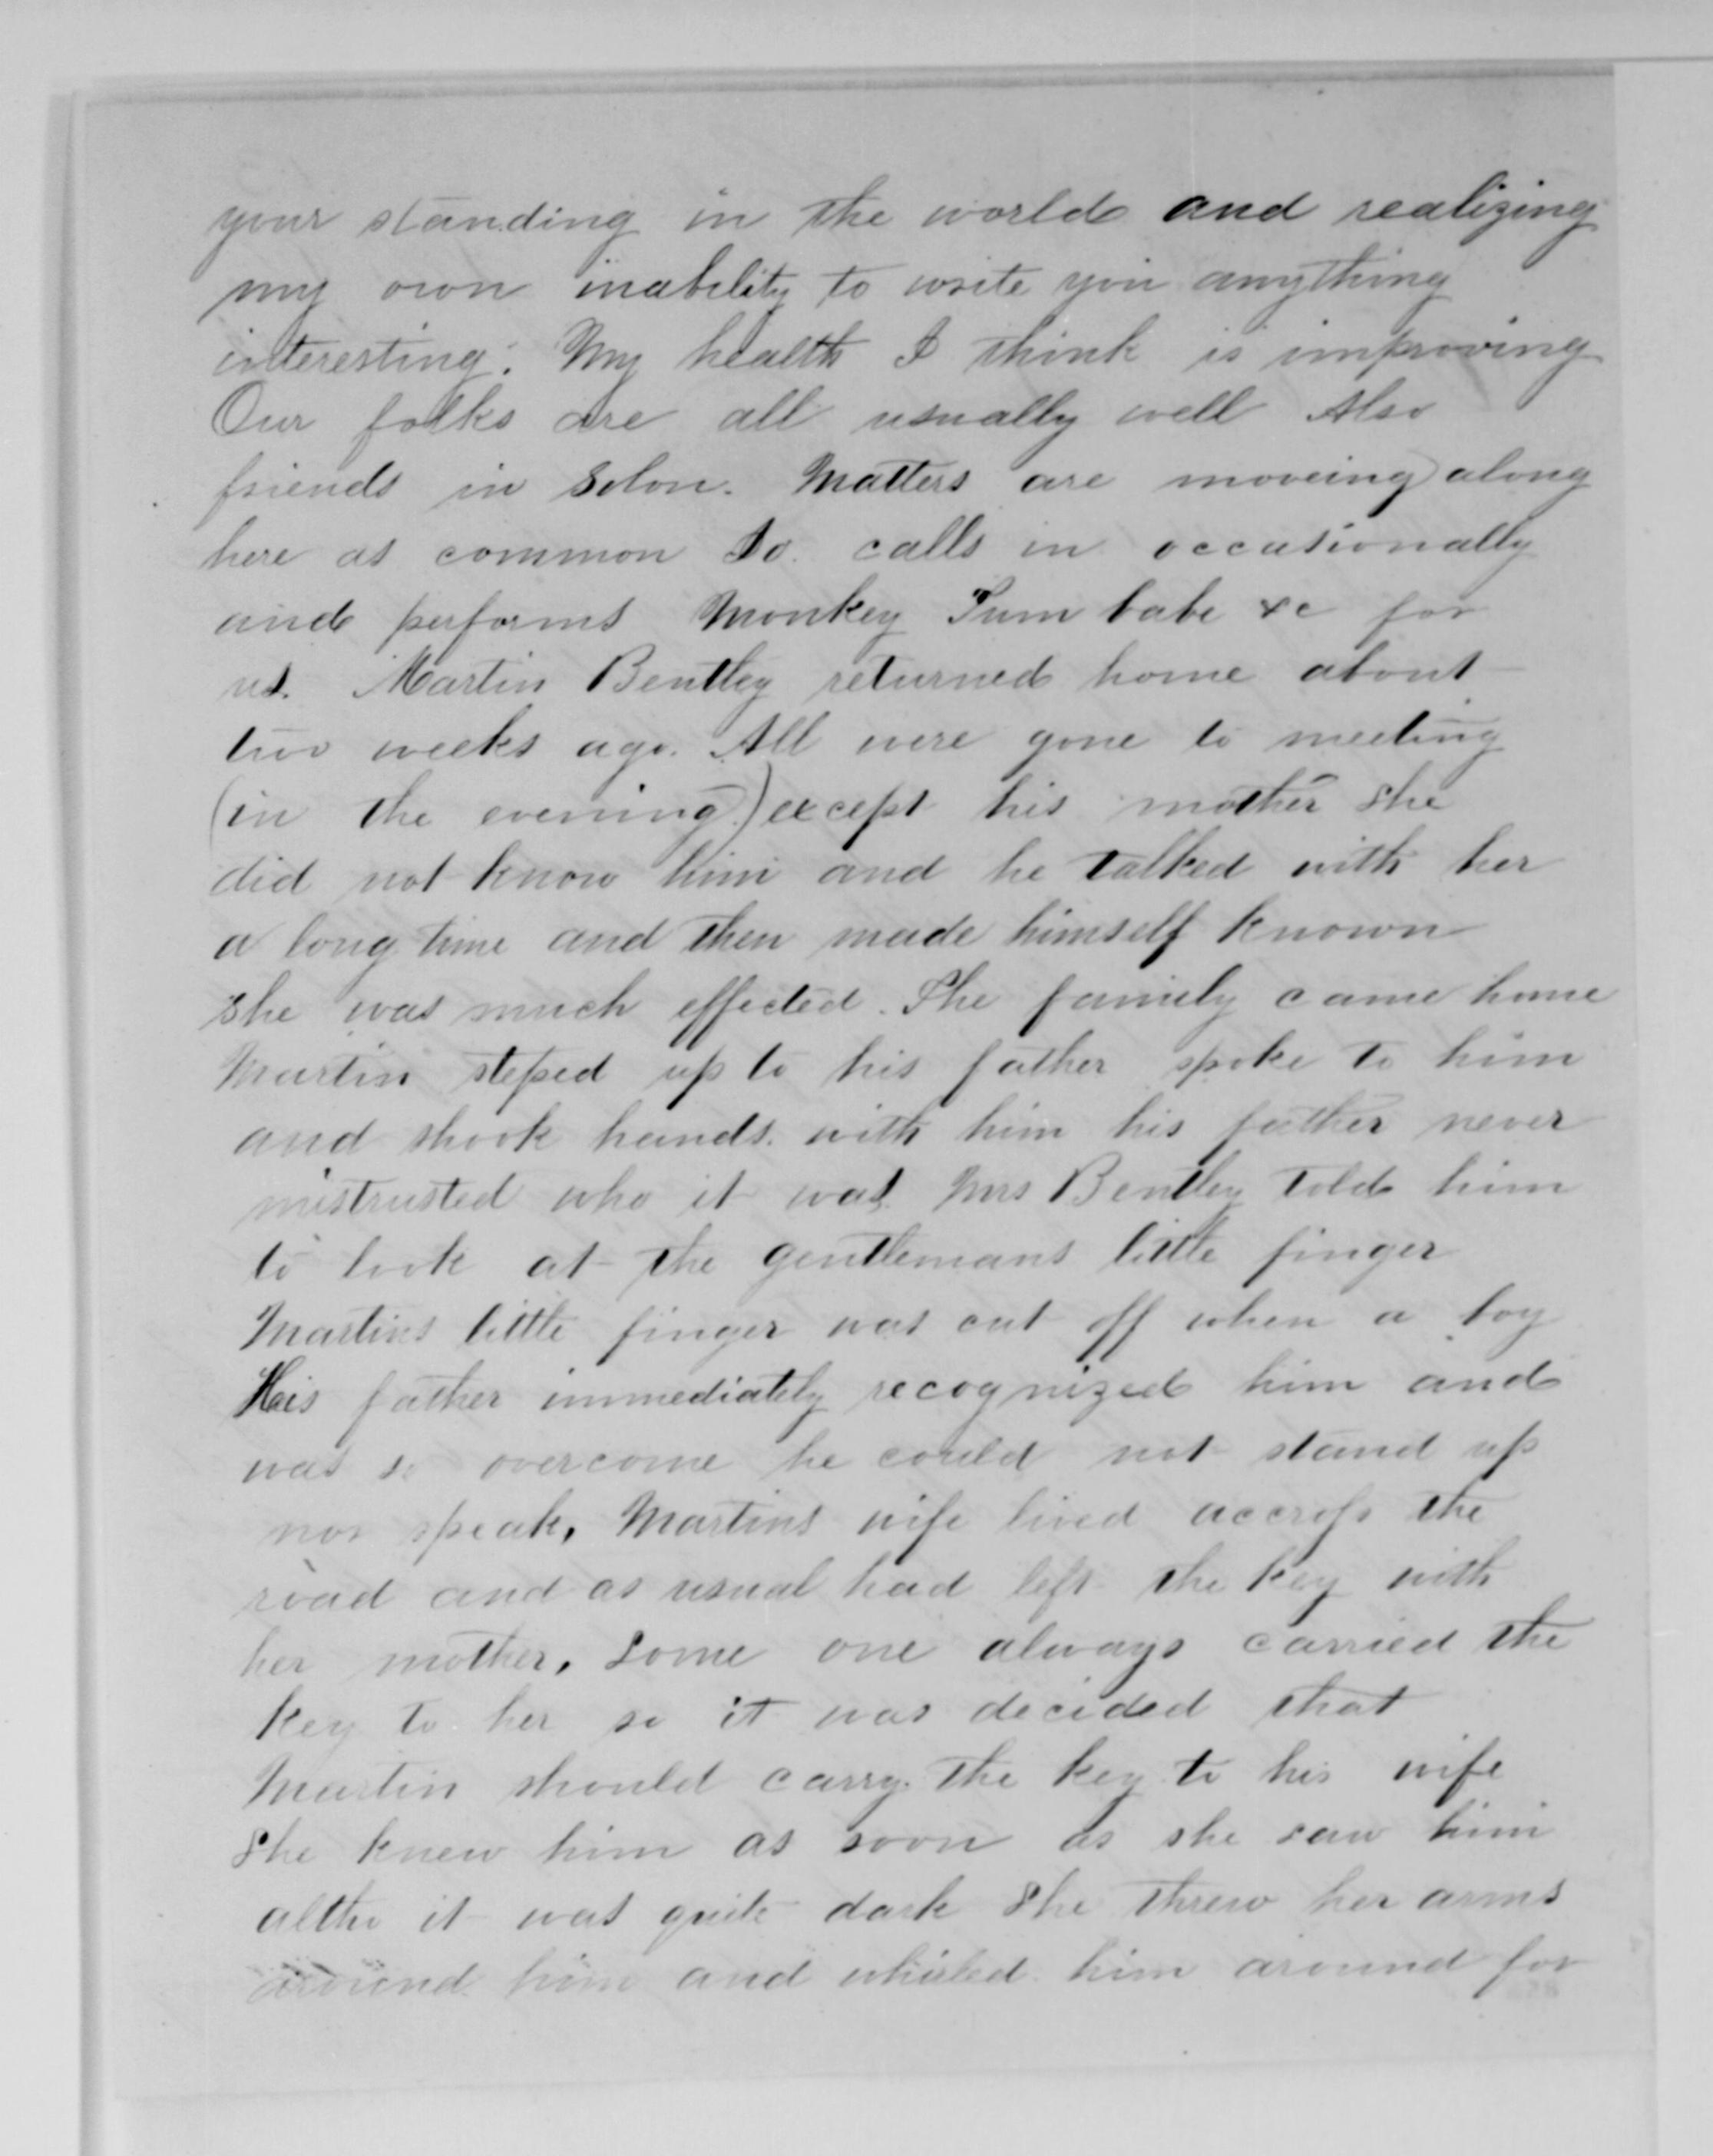 your standing in the world and realizing
my own inability to write you anything
interesting. My health I think is improving
Our folks are all usually well Also
friends in Solon. Matters are moveing along
here as common Jo. calls in occasionally
and performs Monkey babe &c for
us. Martin Bentley returned home about
two weeks ago. All were gone to meeting
(in the evening) except his mother She
did not know him and he talked with her
a long time and then made himself known
She was much effected. The family came home
Martin steped up to his father spoke to him
and shook hands with him his father never
mistrusted who it was. Mrs Bentley told him
to look at the gentlemans little finger
Martins little finger was cut off when a boy
His father immediately recognized him and
was so overcome he could not stand up
nor speak, Martins wife lived accross the
road and as usual had left the key with
her mother, Some one always carried the
key to her so it was decided that
Martin should carry the key to his wife
She knew him as soon as she saw him
altho it was quite dark She threw her arms
around him and whirled him around for